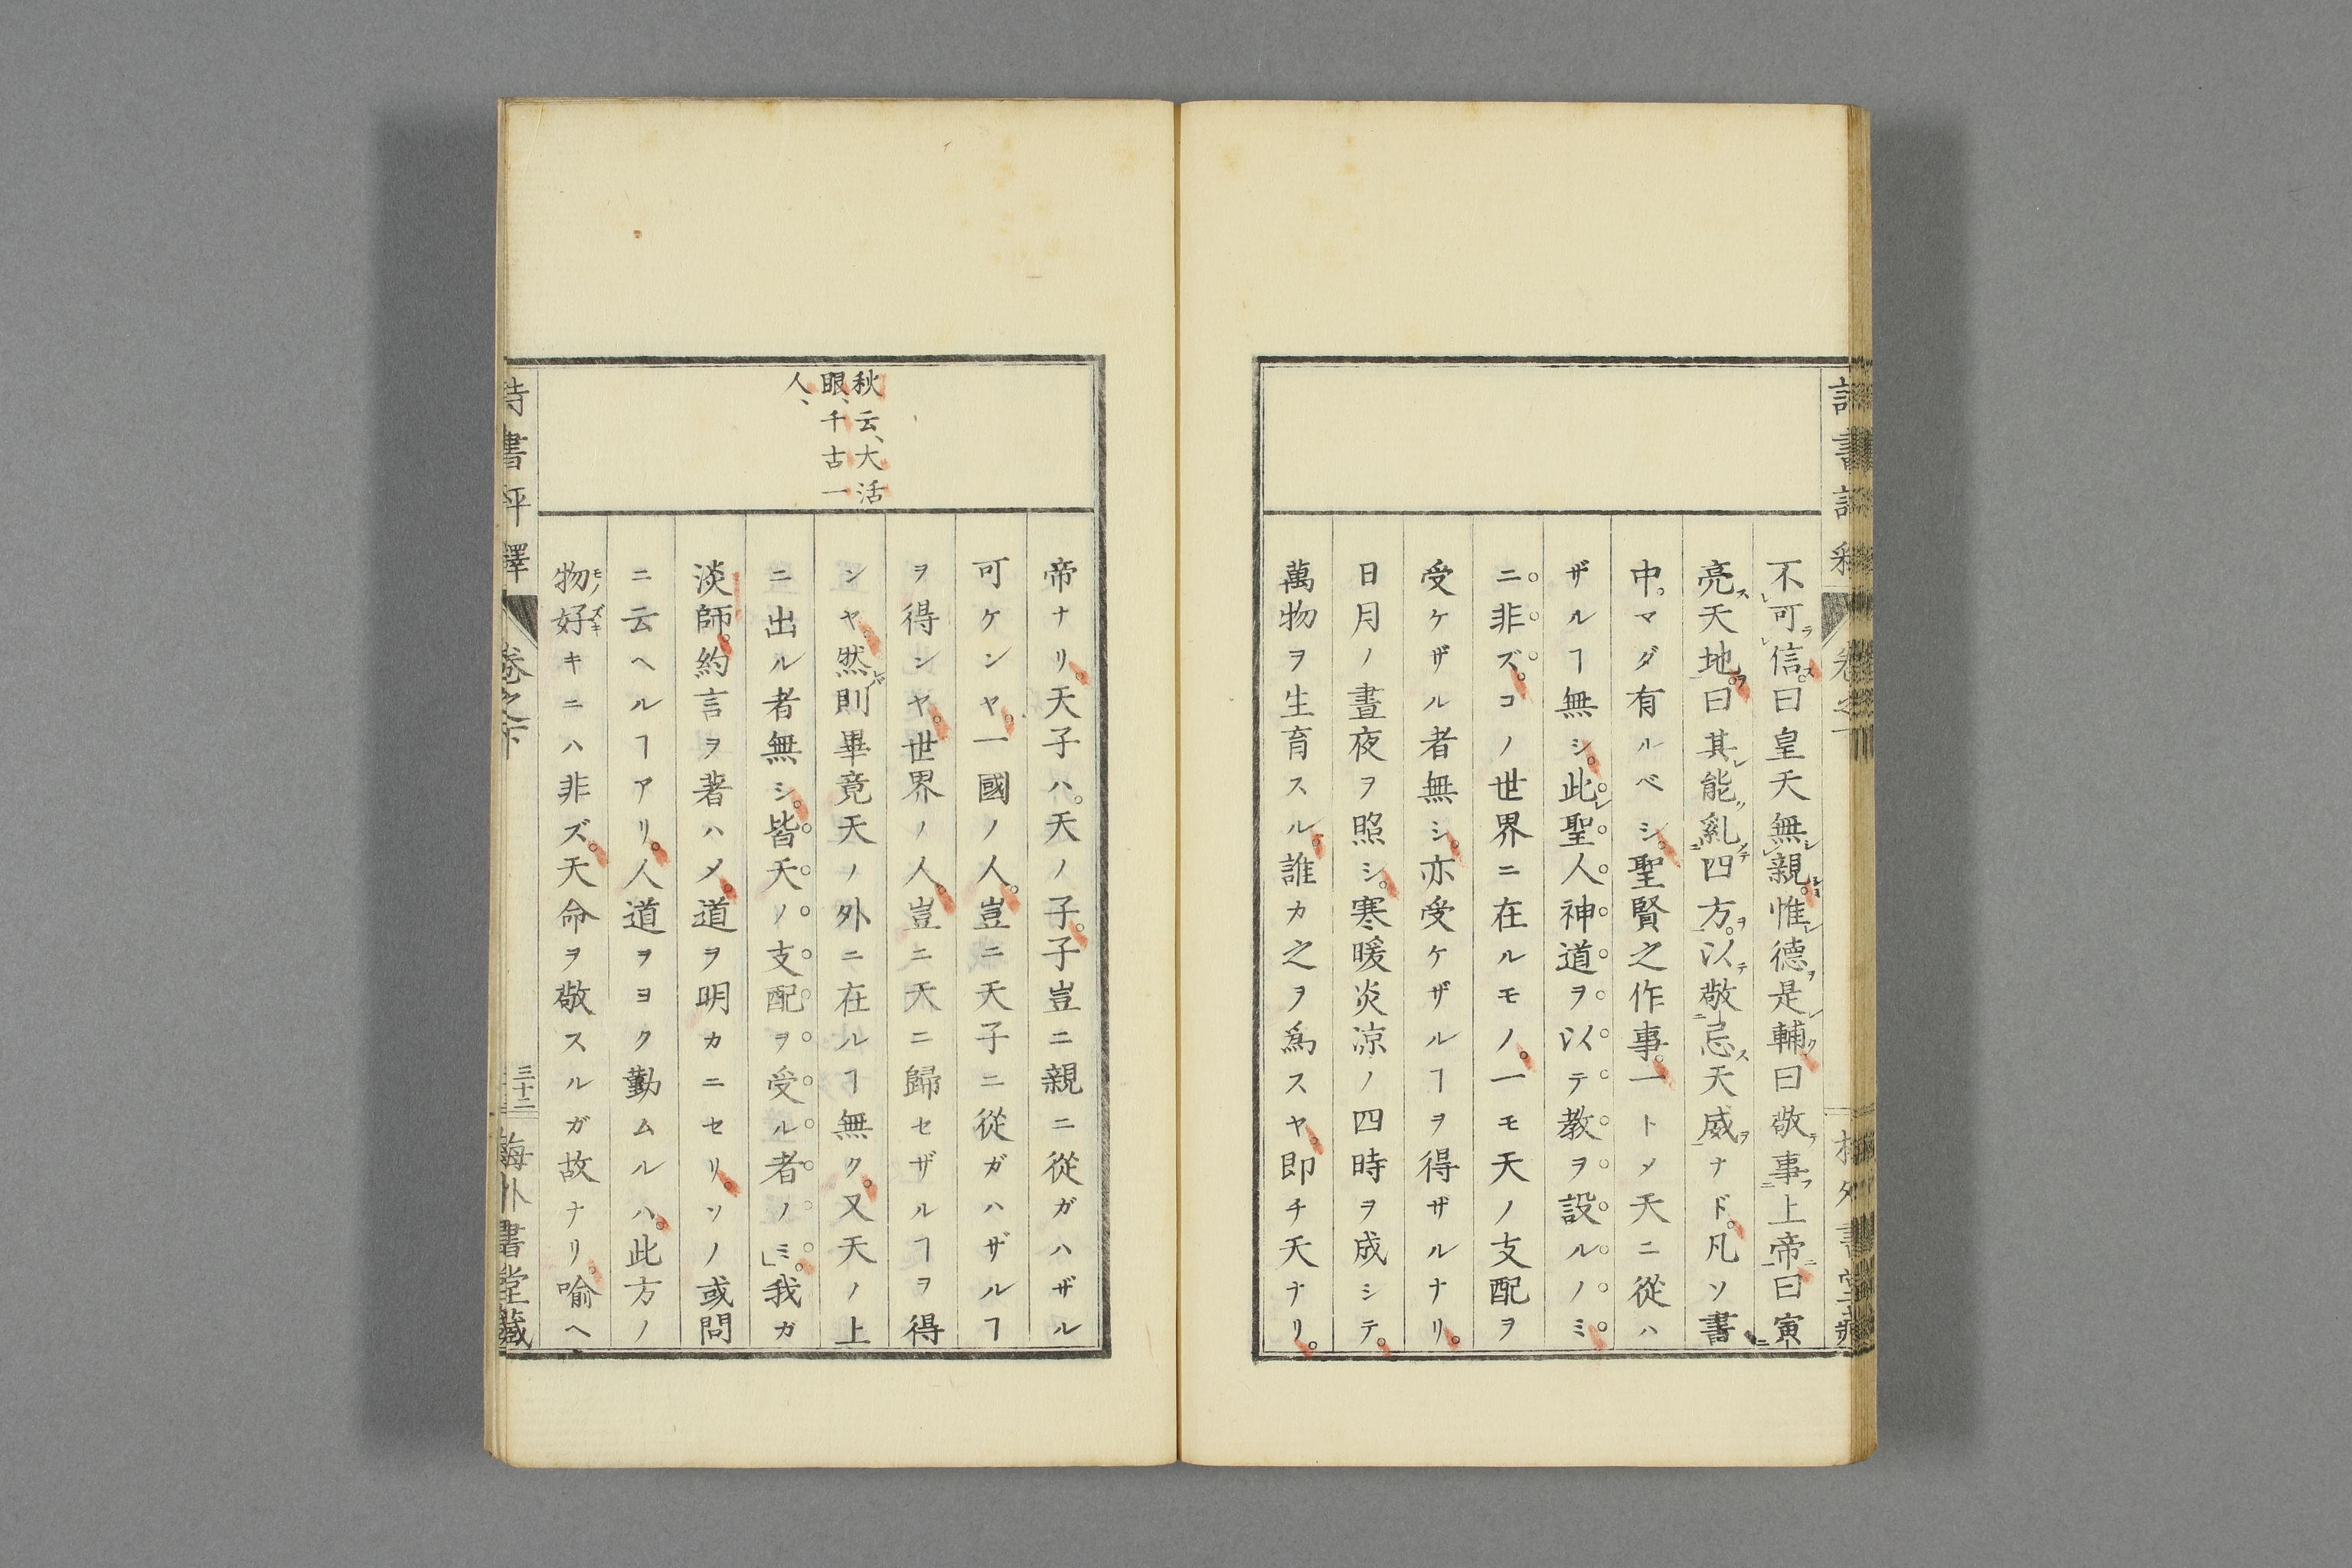 不可信。曰皇天無親。惟德是輔曰敬事上帝曰寅
亮天地。曰其能亂四方。以敬忌天威ナド。凡ソ書
中。マダ有ルベシ。聖賢之作事。一トメ天ニ從ハ
ザルヿ無シ。此聖人神道ヲ以テ教ヲ設ルノミ
ニ非ズ。コノ世界ニ在ルモノ。一モ天ノ支配ヲ
受ケザル者無シ。亦受ケザルヿヲ得ザルナリ。
日月ノ晝夜ヲ照シ。寒暖炎凉ノ四時ヲ成シテ。
萬物ヲ生育スル。誰カ之ヲ爲スヤ。即チ天ナリ。
秋云、大活
眼、千古一
人、
帝ナリ。天子ハ。天ノ子。子豈ニ親ニ從ガハザル
可ケンヤ。一國ノ人。豈ニ天子ニ從ガハザルヿ
ヲ得ンヤ。世界ノ人。豈ニ天ニ歸セザルヿヲ得
ンヤ。然則畢竟天ノ外ニ在ルヿ無ク。又天ノ上
ニ出ル者無シ。皆天ノ支配ヲ受ル者ノミ。」我ガ
淡師。約言ヲ著ハメ。道ヲ明カニセリ。ソノ或問
ニ云ヘルヿアリ。人道ヲヨク勤ムルハ。此方ノ
物好キニハ非ズ。天命ヲ敬スルガ故ナリ。喩ヘ
詩書評釋
卷之下
三十二
梅外書堂藏